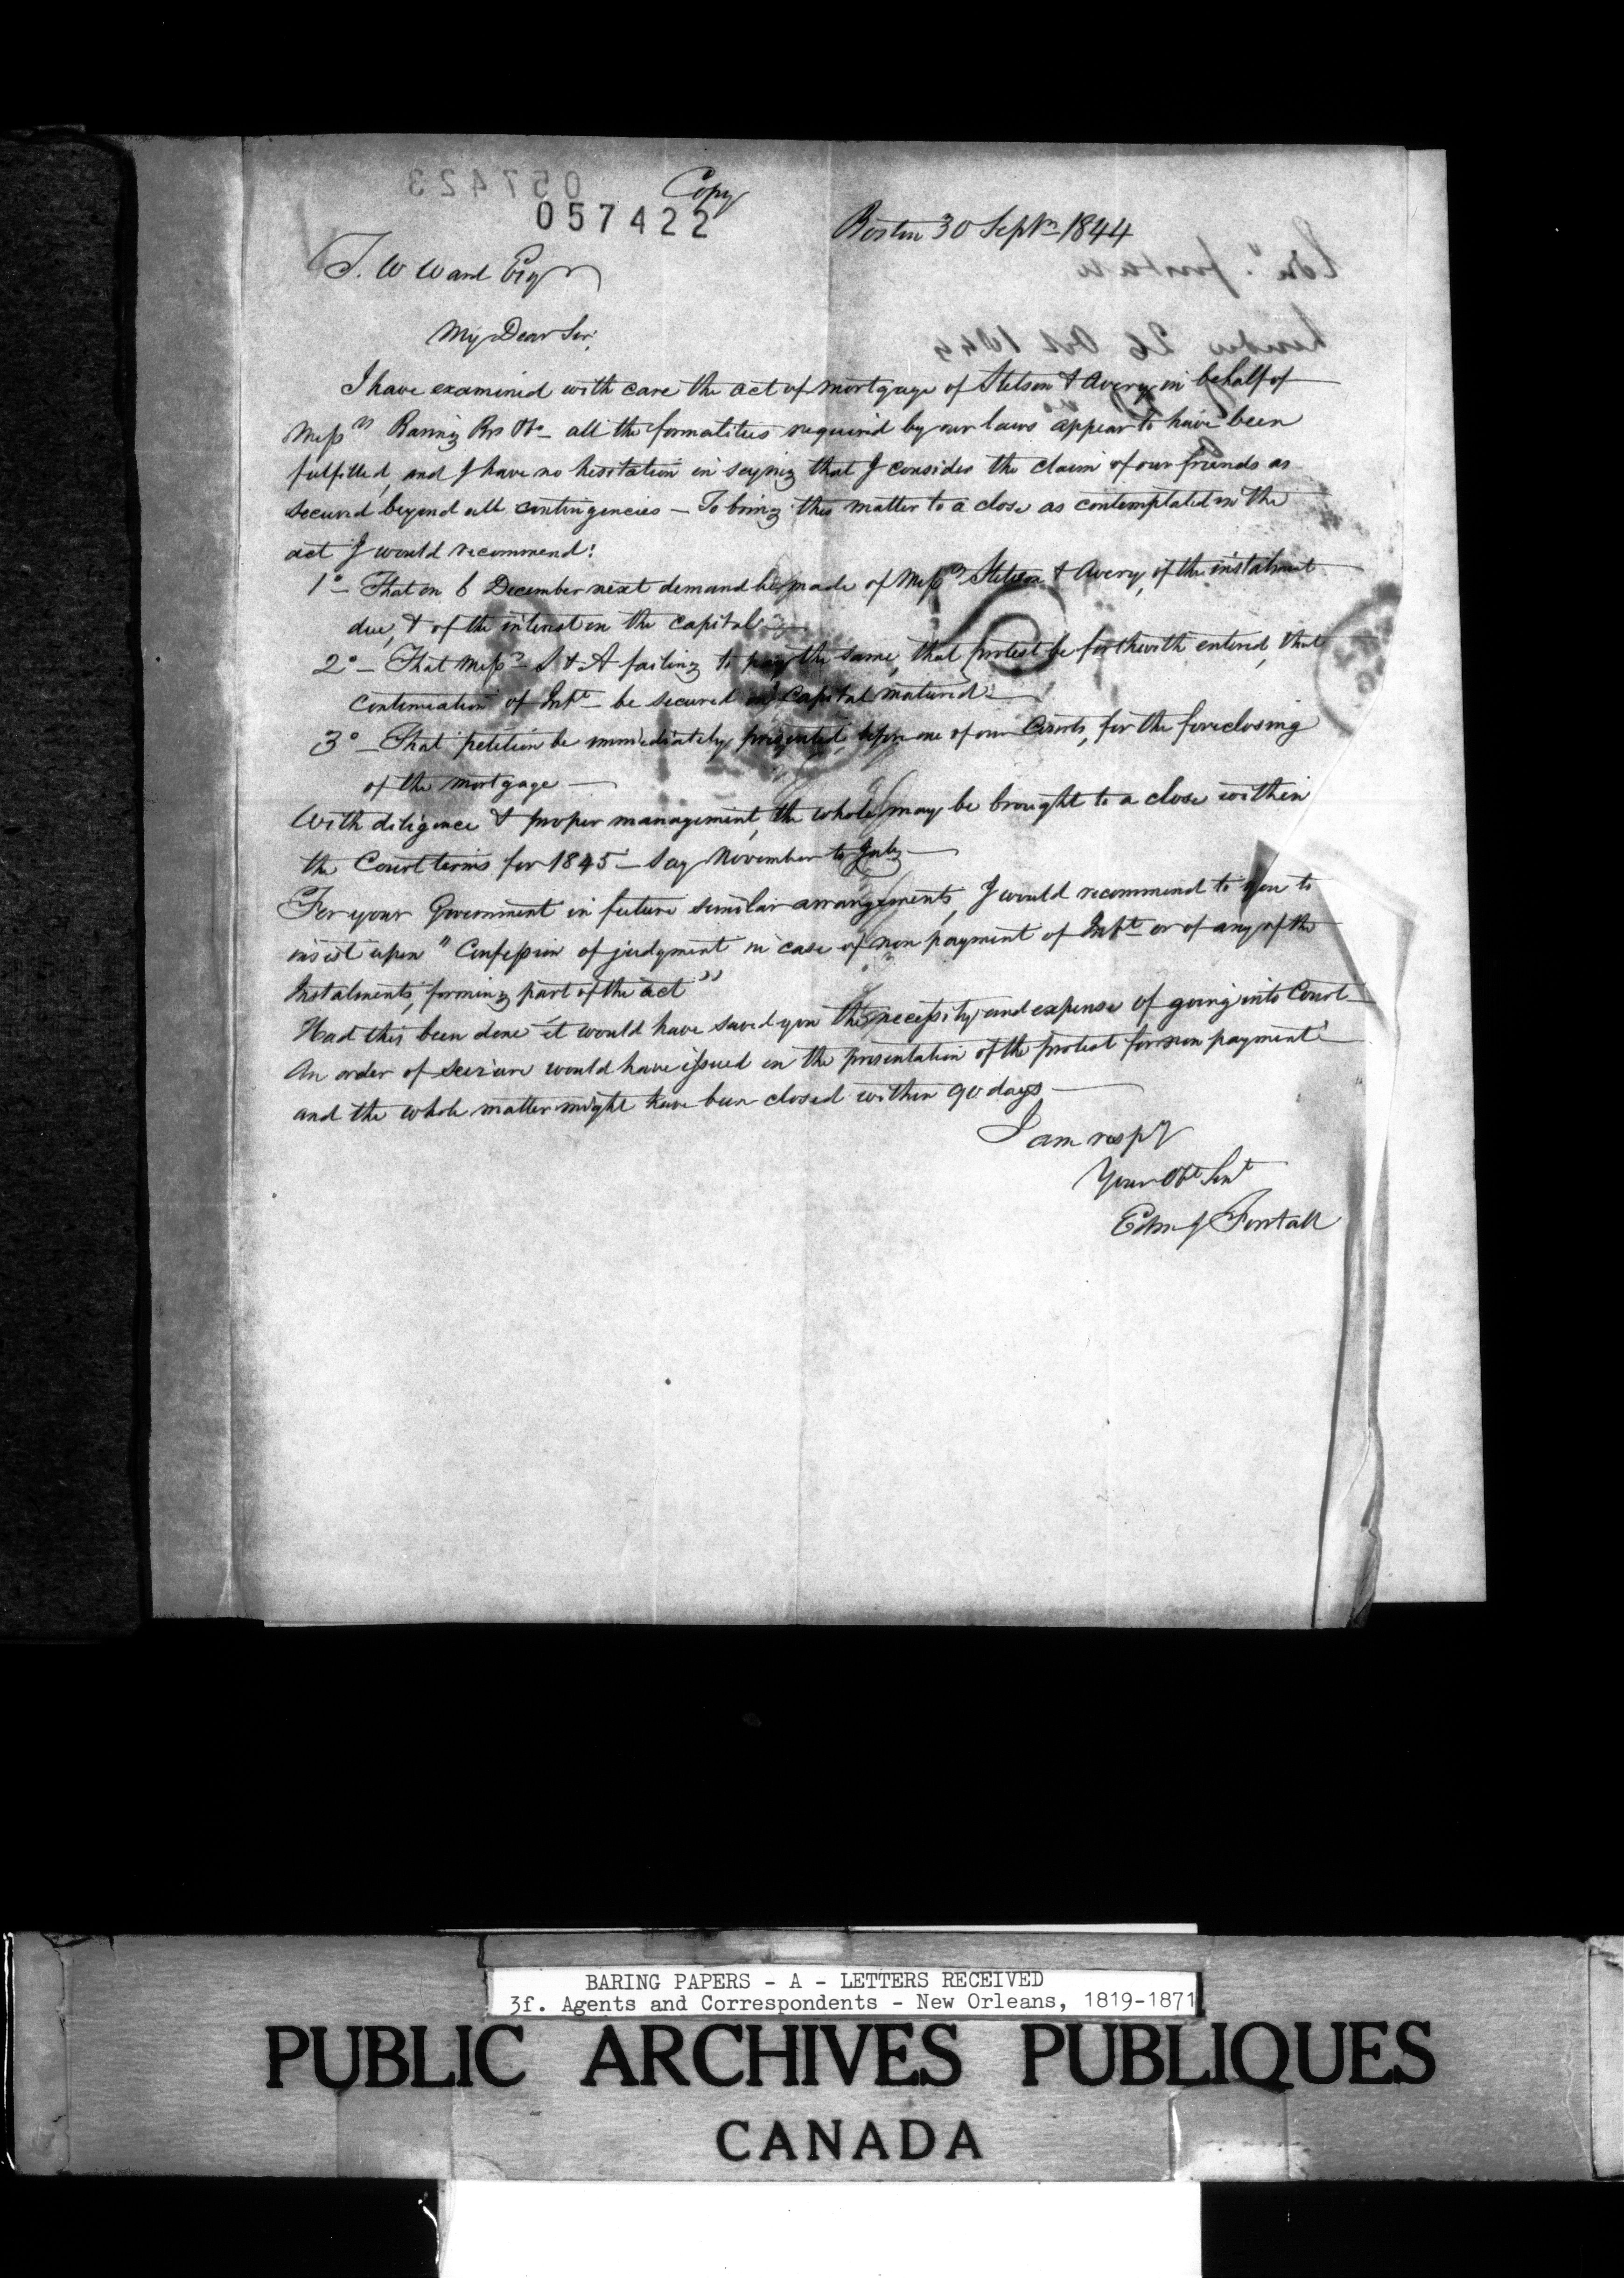 Copy
057422
Boston 30 Septr 1844
T. W Ward Esqr
My Dear Sir,
I have examined with care the act of mortgage of Stetson & Avery in behalf of
Messrs Baring Brs & Co - all the formalities required by our laws appear to have been
fulfilled, and I have no hesitation in saying that I consider the claim of our friends as
secured beyond all contingencies - To bring this matter to a close as contemplated in the
act I would recommend:
1o - That on 6 December next demand be made of Messrs Stetson & Avery, of the instalment
due, & of the interest on the capital -
2o - That Messrs S & A failing to pay the same, that protest be forthwith entered, that
continuation of Intt be secured on capital matured -
3o - That petition be immediately presented, before one of our Courts, for the foreclosing
of the mortgage -
With diligence & proper management, the whole may be brought to a close within
the Court terms for 1845 - Say November to July -
For your Government in future similar arrangements, I would recommend to you to
insist upon "Confession of judgment in case of non payment of Intt or of any of the
Instalments, forming part of the act"
Had this been done it would have saved you the necessity and expense of going into Court
An order of seizure would have issued on the presentation of the protest for non payment
and the whole matter might have been closed within 90 days -
I am respy
Your Obt Sert
Edm J Forstall
BARING PAPERS - A - LETTERS RECEIVED
3f. Agents and Correspondents - New Orleans, 1819-1871
PUBLIC ARCHIVES PUBLIQUES
CANADA